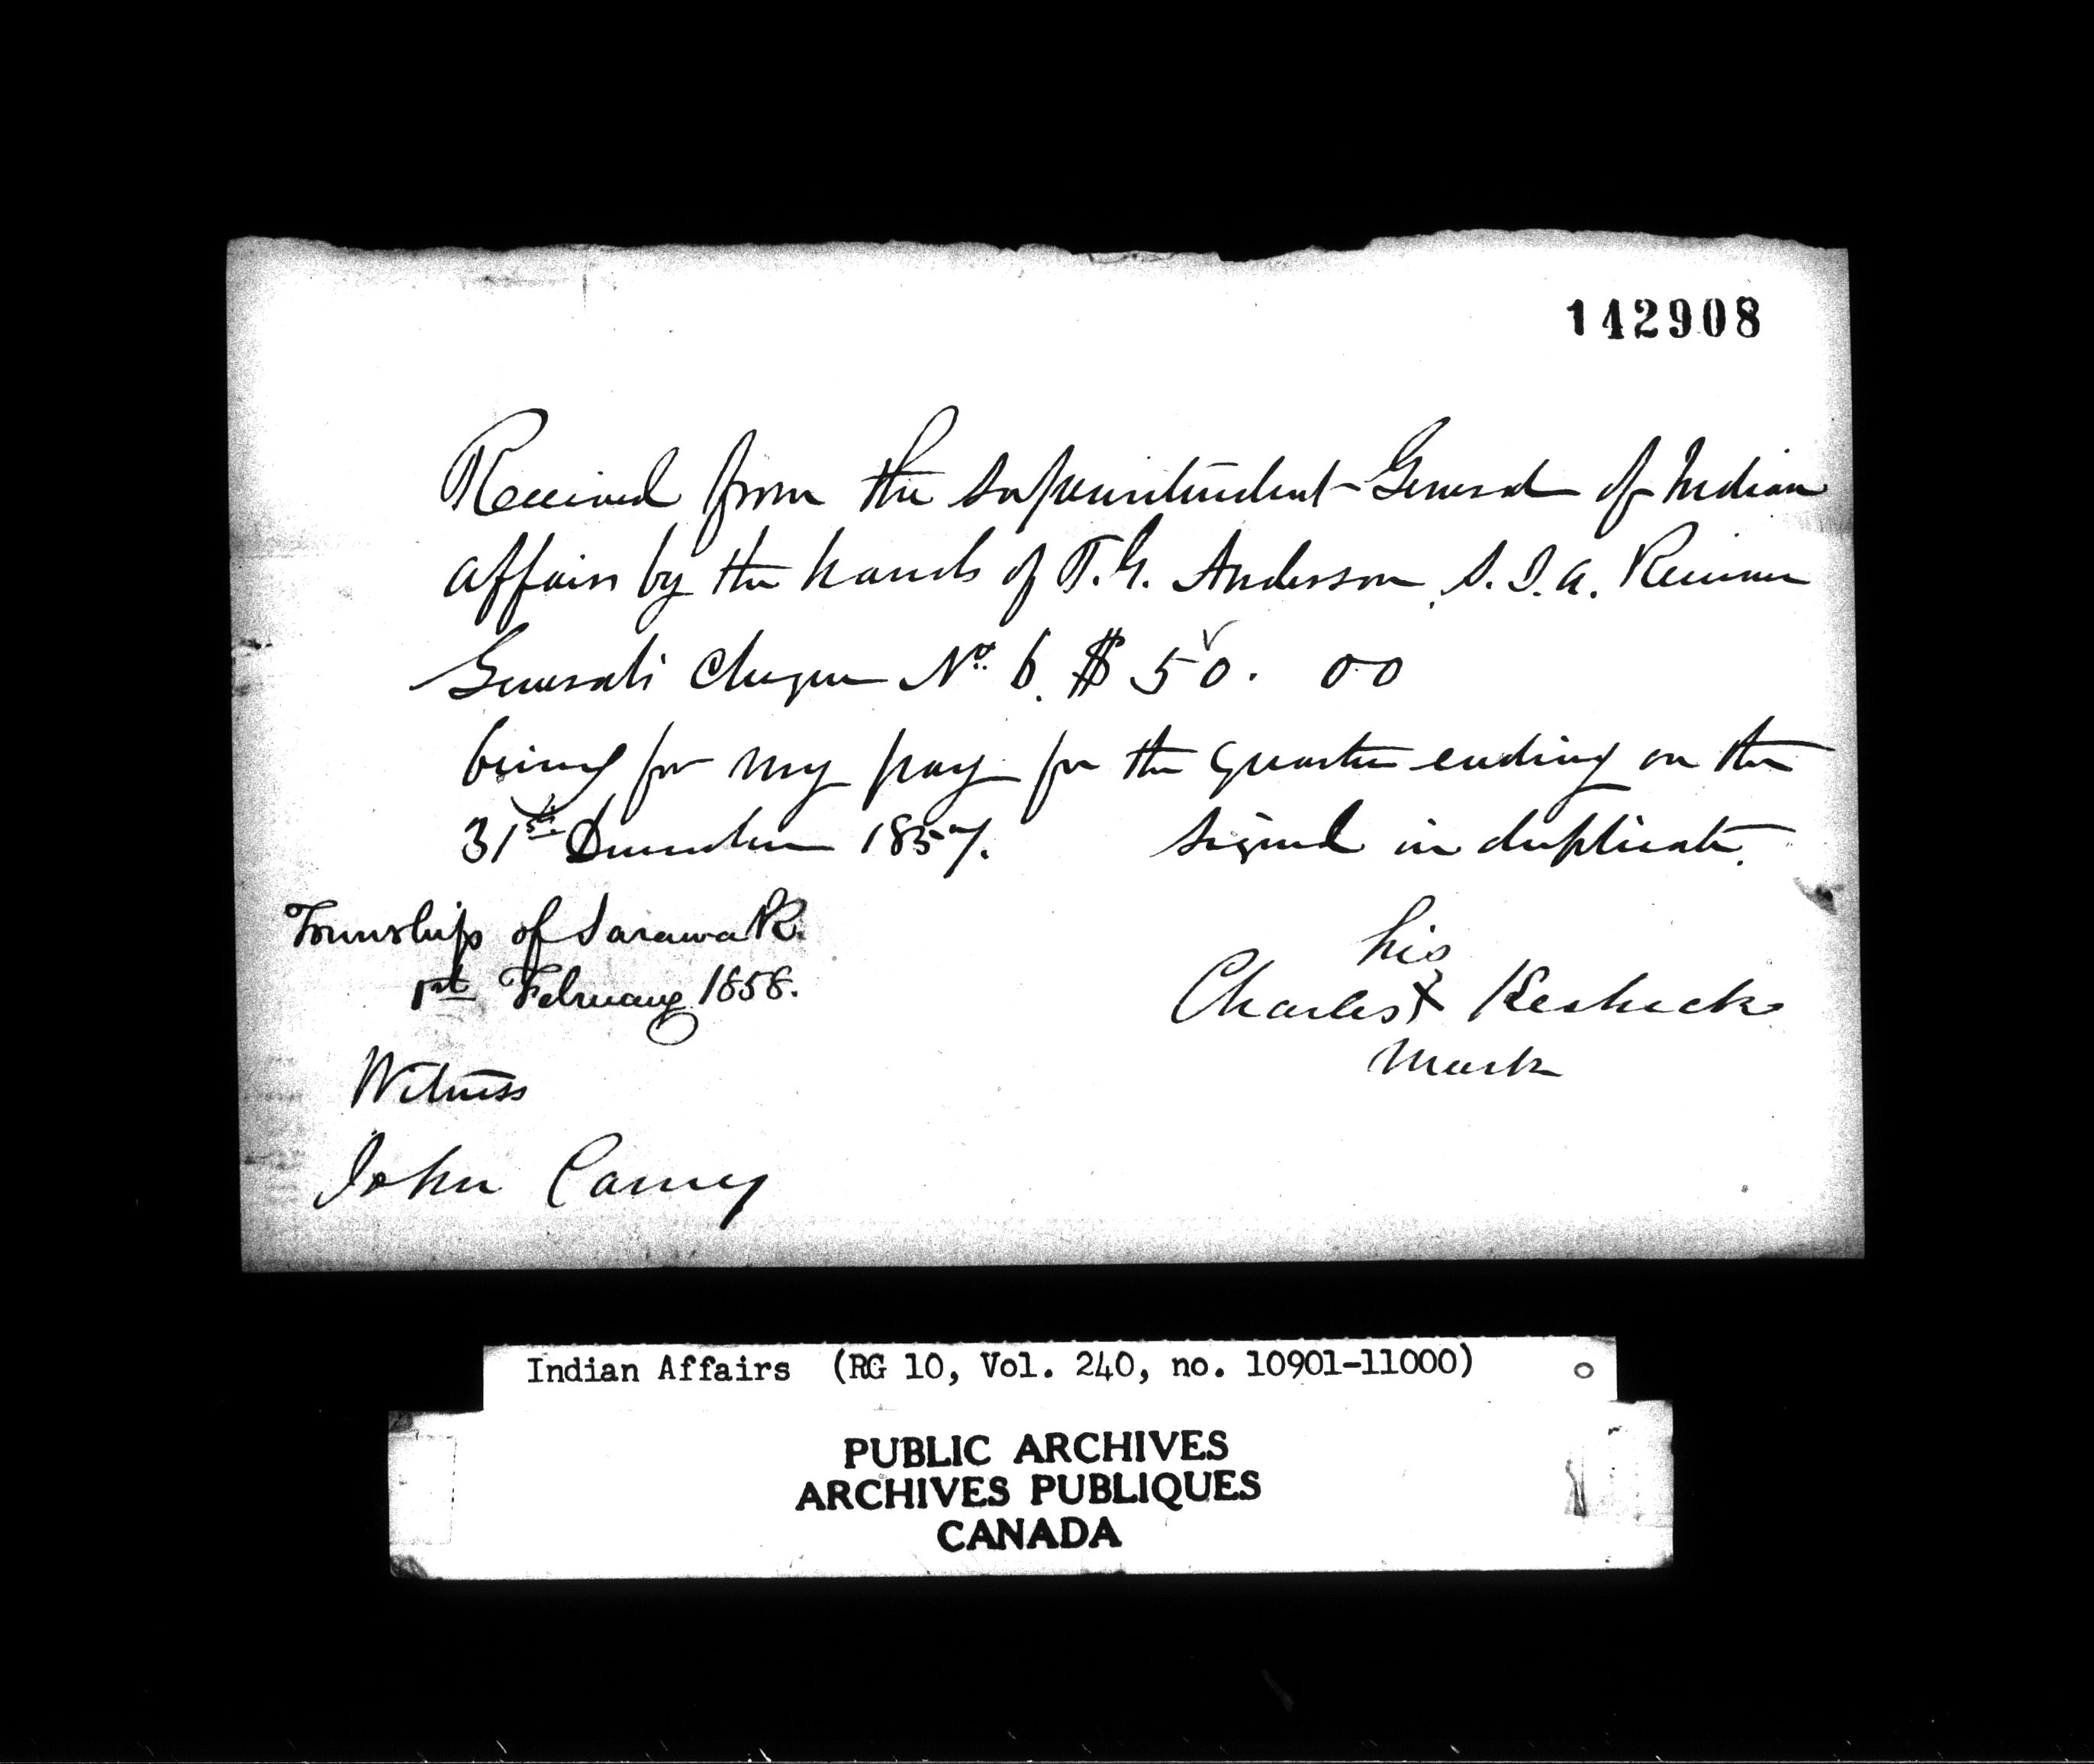 142908
Received from the Superintendent General of Indian
affairs by the hands of T. G. Anderson, S. I. A. Receiver
Generals Cheque No. 6. $50. 00
being for my pay for the quarter ending on the
31st December 1857. Signed in duplicate.
Township of Sarawak.
1st February 1858.
his
Charles X Keeshick
mark
Witness
John Carney
Indian Affairs (RG 10, Vol. 240, no. 10901-11000)
PUBLIC ARCHIVES
ARCHIVES PUBLIQUES
CANADA